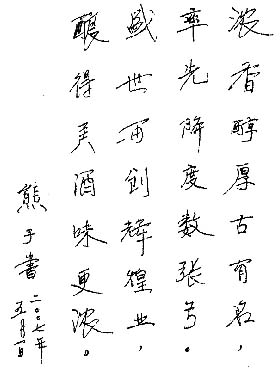 浓香醇厚古有名,
率先降度数张弓。
盛世再创辉煌业,
酿得美酒味更浓。
熊子书
二〇〇七年
五月一日